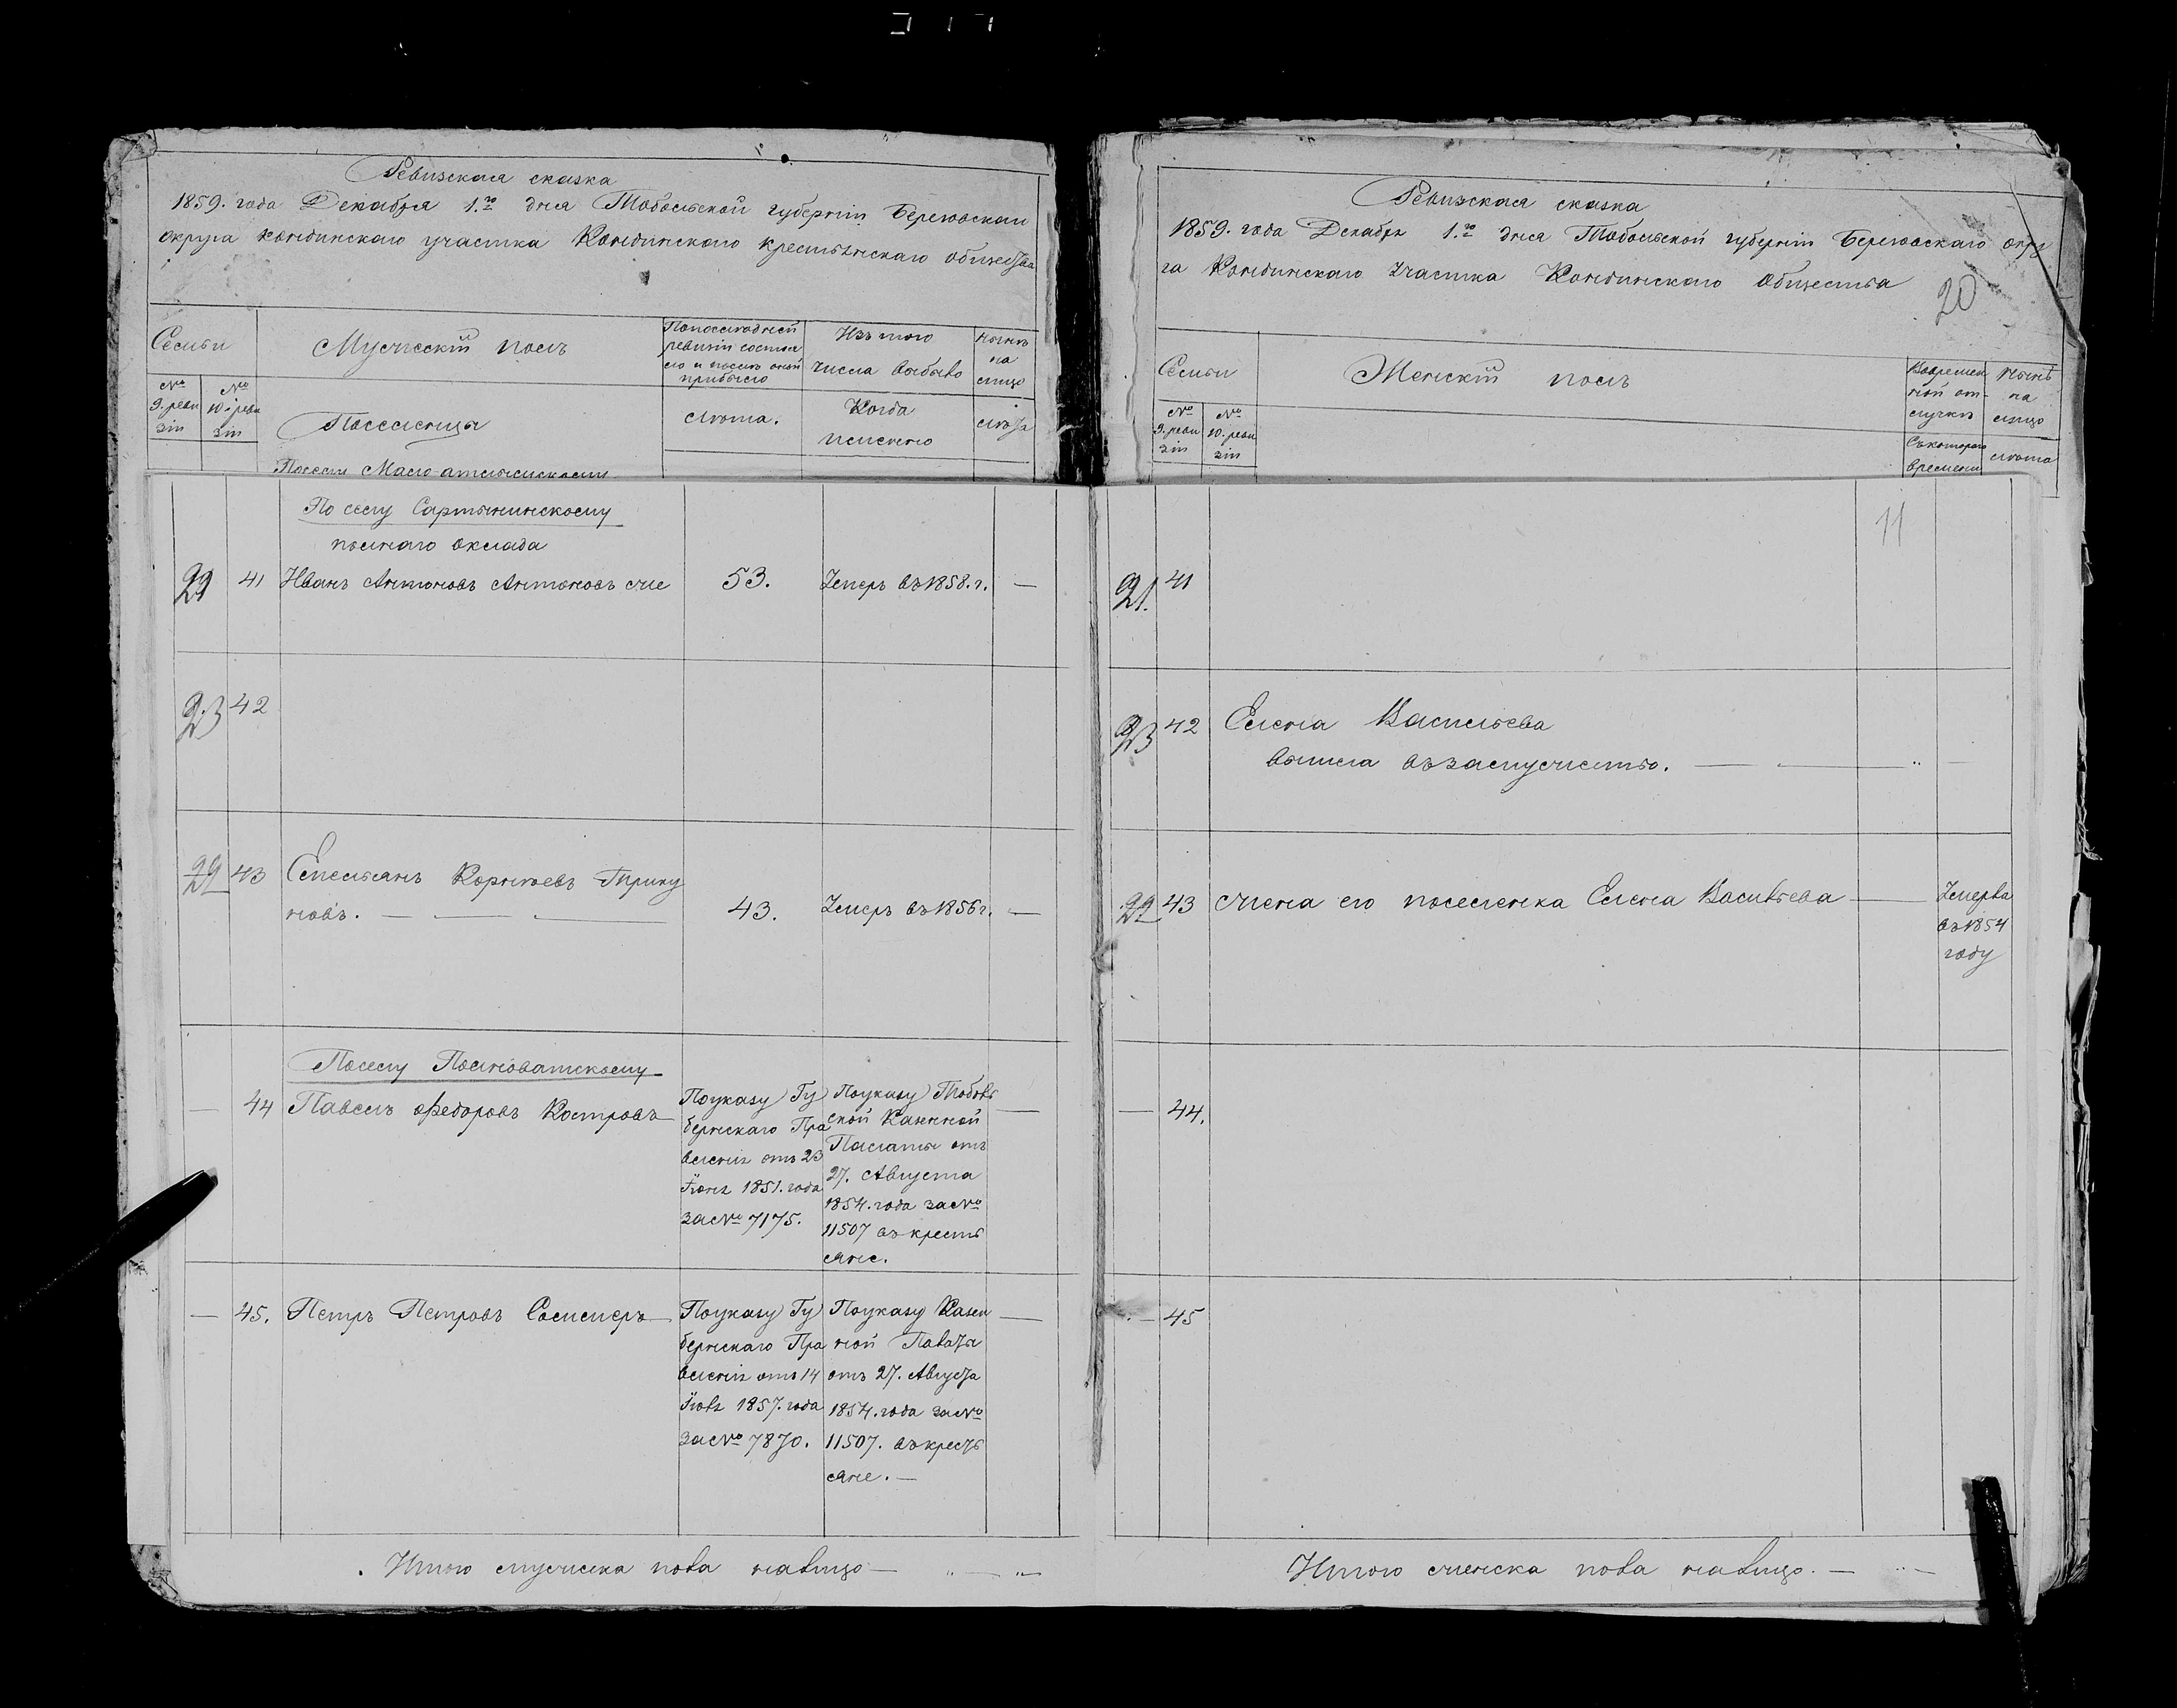 Ревизская сказка
1859. года Декабря 1.го дня Тобольской губернiи Березовскаго
округа Кондинскаго участка Кондинскаго крестьянскаго общества
Семьи
Мужескiй полъ
По последней
ревизiи состоя
ло и после оной
прибыло
Изъ того
числа выбыло
ныне
на
лицо
№
9. реви
зiи
№
10. реви
зiи
Поселенцы
лета.
Когда
именно
лета
По селу Мало-атлымскому
По селу Сартынинскому
полнаго оклада
29 41 Иванъ Антоновъ Антоновъ же 53. Умеръ въ 1858. г. —
23 42
29 43 Емельянъ Корнеевъ
новъ. — 43. Умеръ въ 1856 г. —
По селу Полноватскому
— 44 Павелъ Федоровъ Костровъ —
По указу Гу
бернскаго Пра
вленiя отъ 23
Iюня 1851. года
за № 7175.
По указу Тоболь
ской Казенной
Палаты отъ
27. Августа
1854. года за №
11507 въ кресть
яне.
—
— 45. Петръ Петровъ —
По указу Гу
бернскаго Пра
вленiя отъ 14
Iюля 1857. года
за № 7870.
По указу Казен
ной Палаты
отъ 27. Августа
1854. года за №
11507. въ кресть
яне. —
—
Итого мужеска пола налицо —
Ревизская сказка
1859. года Декабря 1.го дня Тобольской губернiи Березовскаго окру
га Кондинскаго участка Кондинскаго общества
20
Семьи
Женскiй полъ
Во времен
ной от-
лучке
ныне
на
лицо
№
9. реви
зiи
№
10. реви
зiи
Съ котораго
времени
лета
11
21. 41
23 42 Елена Васильева
вышла въ замужество. —
29 43 жена его поселенка Елена Васильева —
Умерла
въ 1854
году
— 44.
— 45
Итого женска пола налицо. —